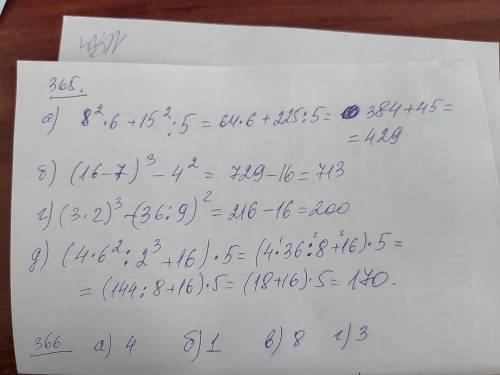 365.
а) 8²·6+15²:5=64·6+225:5= 384+45=
=429
б) (16-7)³-4²= 729-16=713
г) (3·2)³-(36:9)²=216-16=200
д) (4·6²:2³+16)·5=(4·36:8+16)·5=
=(144:8+16)·5=(18+16)·5=170.
366 а) 4 б) 1 в) 8 г) 3